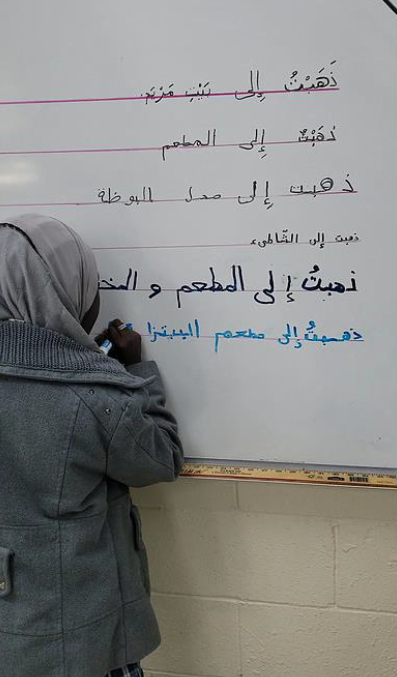 ذَهَبْتُ إِلى بَيْتِ مَرْيَم.
ذَهَبْتُ إِلى المطعم
ذهبت إِلى محل البوظة
ذهبت إلى الشّاطىء
ذهبتُ إلى المطعم و
ذهبتُ إلى مطعم البيتزا